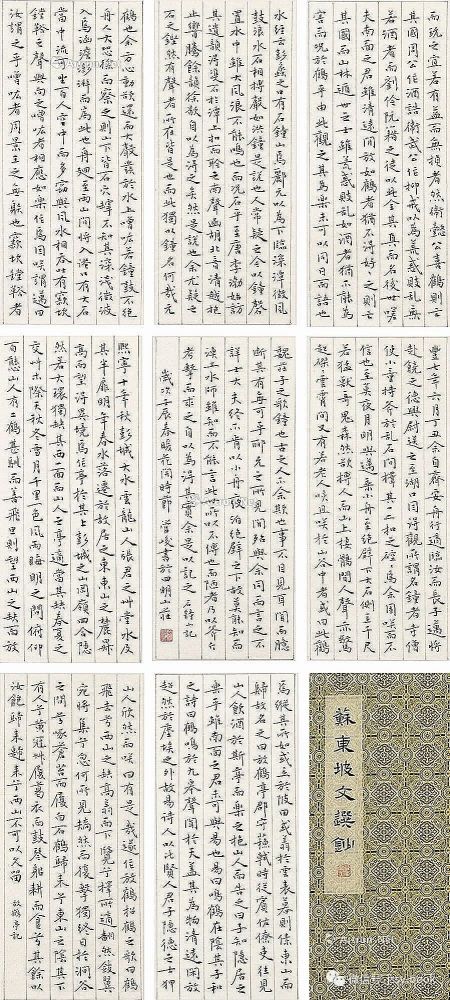 蘇東坡文選鈔
水經云彭蠡之口有石鐘山焉酈元以為下臨深潭微風
鼓浪水石相搏聲如洪鐘是說也人常疑之今以鐘磬
置水中雖大風浪不能鳴也而況石乎至唐李渤始訪
其遺蹤得雙石於潭上扣而聆之南聲函胡北音清越枹
止響騰餘韻徐歇自以為得之矣然是說也余尤疑之
石之鏗然有聲者所在皆是也而此獨以鐘名何哉元
豐七年六月丁丑余自齊安舟行適臨汝而長子邁將
赴饒之德興尉送之至湖口因得觀所謂石鐘者寺僧
使小童持斧於亂石間擇其一二扣之硿焉余固笑而不
信也至莫夜月明與邁乘小舟至絕壁下大石側立千尺
若猛獸奇鬼森然欲搏人而山上棲鶻聞人聲亦驚
起磔磔雲霄間又有若老人咳且笑於山谷中者或曰此鸛
鶴也余方心動欲還而大聲發於水上噌吰若鐘鼓不絕
舟人大恐徐而察之則山下皆石穴罅不知其深淺微波
入焉涵澹澎湃而為此也舟廻至兩山間將入港口有大石
當中流可坐百人空中而多竅與風水相吞吐有窾坎
鏜鞳之聲與向之噌吰者相應如樂作焉因笑謂邁曰
汝識之乎噌吰者周景王之無射也窾坎鏜鞳者
魏莊子之歌鐘也古之人不余欺也事不目見耳聞而臆
斷其有無可乎酈元之所見聞殆與余同而言之不
詳士大夫終不肯以小舟夜泊絕壁之下故莫能知而
漁工水師雖知而不能言此世所以不傳也而陋者乃以斧斤
考擊而求之自以為得其實余是以記之石鐘山記
歲次壬辰春暖花開時節曾峻書於四明山莊
熙寧十年秋彭城大水雲龍山人張君之草堂水及
其半扉明年春水落遷於故居之東東山之麓升
高而望得異境焉作亭於其上彭城之山岡嶺四合隱
然若大環獨缺其西一面而山人之亭適當其缺春夏之
交草木際天秋冬雪月千里一色風雨晦明之間俯仰
百態山人有二鶴甚馴而善飛旦則望西山之缺而放
焉縱其所如或立於陂田或翔於雲表暮則傃東山而
歸故名之曰放鶴亭郡守蘇軾時從賓佐僚吏往見
山人飲酒於斯亭而樂之挹山人而告之曰子知隱居之
樂乎雖南面之君未可與易也易曰鳴鶴在陰其子和
之詩曰鶴鳴於九皋聲聞於天蓋其為物清遠閑放
超然於塵埃之外故易詩人以比賢人君子隱德之士狎
而玩之宜若有益而無損者然衛懿公喜鶴則亡
其國周公作酒誥衛武公作抑戒以為荒惑敗亂無
若酒者而劉伶阮籍之徒以此全其真而名後世嗟
夫南面之君雖清遠閑放如鶴者猶不得好好之則亡
其國而山林遁世之士雖荒惑敗亂如酒者猶不能為
害而況於鶴乎由此觀之其為樂未可以同日而語也
山人欣然而笑曰有是哉遂作放鶴招鶴之歌曰鶴
飛去兮西山之缺高翔而下覽兮擇所適翻然斂翼
宛將集兮忽何所見矯然而復擊獨終日於澗谷
之間兮啄蒼苔而履白石鶴歸來兮東山之陰其下
有人兮黃冠草屨葛衣而鼓琴躬耕而食兮其餘以
汝飽歸來歸來兮西山不可以久留放鶴亭記